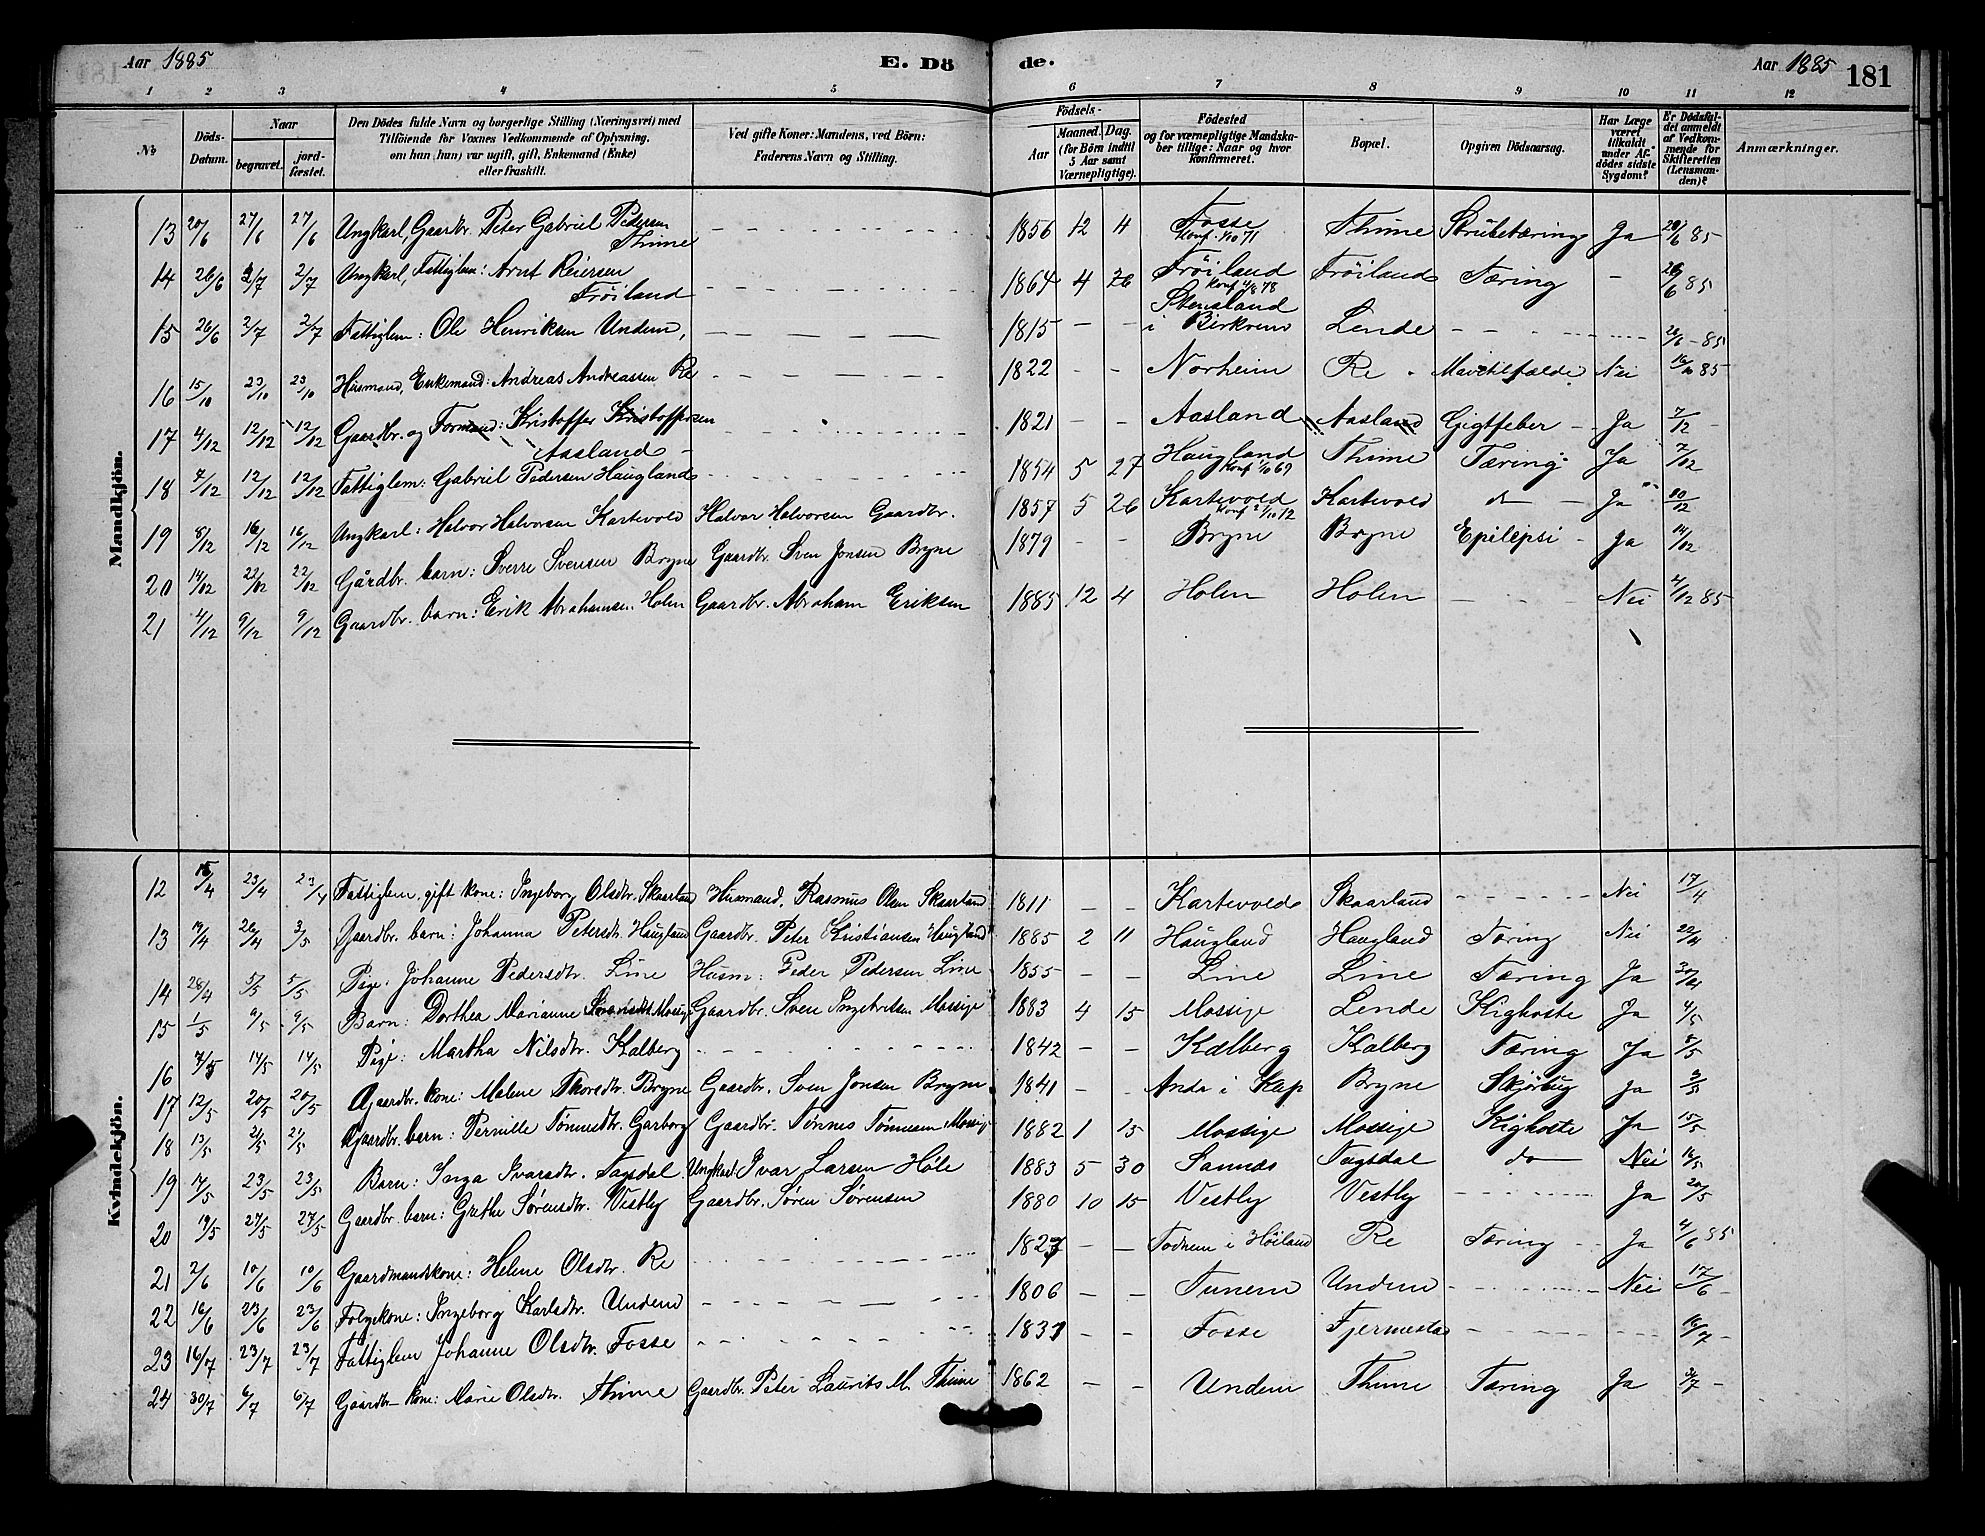 Aar 1885
E. Dö
de.
Aar 1885
181
1 2 3 4 5 6 7 8 9 10 11 12
No
Döds-Datum.
Naar
begravet.
jordfæstet.
Den Dödes fulde Navn og borgerlige Stilling (Næringsvei) med
Tilföiende for Voxnes Vedkommende af Oplysning,
om han, hun) var ugift, gift, Enkemand (Enke)
eller fraskilt.
Ved gifte Koner: Mandens, ved Börn:
Faderens Navn og Stilling.
Födsels-
Aar
Maaned. Dag.
(for Börn indtil
5 Aar samt
Værnepligtige).
Födested
og for værnepligtige Mandska-
ber tillige: Naar og hvor
konfirmeret.
Bopæl.
Opgiven Dödsaarsag.
Har Læge
været
tilkaldt
under Af-
dödes sidste
Sygdom?
Er Dödsfal-
det anmeldt
af Vedkom-
mende for
Skifteretten
(Lensman-
den)?
Anmærkninger.
Mandkjön.
13 20/6 27/6 27/6 Ungkarl, Gaardbr. Peter Gabriel Pedersen Thime 1856 12 4 Fosse Thime Strubetæring Ja 20/6 85
14 26/6 2/7 2/7 Ungkarl, Fattiglem: Arnt Reiersen Fröiland 1864 4 26 Fröiland Fröiland Tæring - 26/6 85
15 26/6 2/7 2/7 Fattiglem: Ole Henriksen Undem, 1815 - - Stensland i Birkrem Lende - 85
16 15/10 23/10 23/10 Husmand, Enkemand: Andreas Andreassen Re 1822 - - Norheim Re Nei 85
17 4/12 12/12 12/12 Gaardbr. og Formand: Kristoffer Kristoffersen Aasland 1821 - - Aasland Aasland Gigtfeber Ja 7/12
18 4/12 12/12 12/12 Fattiglem: Gabriel Pedersen Haugland 1854 5 27 Haugland Thime Tæring Ja 7/12
19 8/12 16/12 16/12 Ungkarl: Halvor Halvorsen Kartevold Halvor Halvorsen Gaardbr. 1857 5 26 Kartevold Kartevold do Ja 10/12
20 14/12 22/12 22/12 Gårdbr. barn: Sverre Svensen Bryne Gaardbr. Sven Jonsen Bryne 1879 - - Bryne Bryne Epilepsi Ja 14/12
21 4/12 9/12 9/12 Gaardbr. barn: Erik Abrahamsen Holen Gaardbr. Abraham Eriksen 1885 12 4 Holen Holen - Nei 4/12 85
Kvindekjön.
12 15/4 23/4 23/4 Fattiglem, gift kone: Ingeborg Olsdtr. Skaarland Husmand, Rasmus Olsen Skaarland 1811 - - Kartevold Skaarland - Nei 17/4
13 19/4 26/4 3/5 Gaardbr. barn: Johanna Petersdtr. Haugland Gaardbr. Peter Kristiansen Haugland 1885 2 11 Haugland Haugland Tæring Nei 22/4
14 28/4 5/5 5/5 Pige: Johanne Pedersdtr. Line Husm: Peder Pedersen Line 1855 - - Line Line Tæring Ja 30/4
15 1/5 9/5 9/5 Barn: Dorthea Marianne Mossige Gaardbr. Sven Ingebretsen Mossige 1883 4 15 Mossige Lende Kighoste Ja 4/5
16 7/5 14/5 14/5 Pige: Martha Nilsdtr. Kalberg 1842 - - Kalberg Kalberg Tæring Ja 8/5
17 12/5 20/5 20/5 Gaardbr. kone: Malene Thoresdtr. Bryne Gaardbr. Sven Jonsen Bryne 1841 - Anda i Klep Bryne Skjörbug Ja
18 13/5 21/5 21/5 Gaardbr. barn: Pernille Tönnesdtr. Garborg Gaardbr. Tönnes Tönnesen Mossige 1882 1 15 Mossige Mossige Kighoste Ja 15/5
19 17/5 23/5 23/5 Barn: Inga Ivarsdtr. Tagsdal Ungkarl Ivar Larsen Höle 1883 5 30 Sannes Tagsdal do Nei
20 19/5 27/5 27/5 Gaardbr. barn: Grethe Sörensdtr. Vestly Gaardbr. Sören Sörensen 1880 10 15 Vestly Vestly - Ja 20/5
21 2/6 10/6 10/6 Gaardmandskone: Helene Olsdtr. Re 1827 - - Todnem i Höiland Re Tæring Ja 4/6 85
22 16/6 23/6 23/6 Folgekone: Ingeborg Karlsdtr. Undem 1806 - - Tunem Undem - Nei 17/6
23 16/7 23/7 23/7 Fattiglem Johanne Olsdtr. Fosse - - Fosse Fjermestad -
24 30/7 6/7 6/7 Gaardbr. kone: Marie Olsdtr. Thime Gaardbr. Peter Laurits M. Thime 1862 - - Undem Thime Tæring Ja